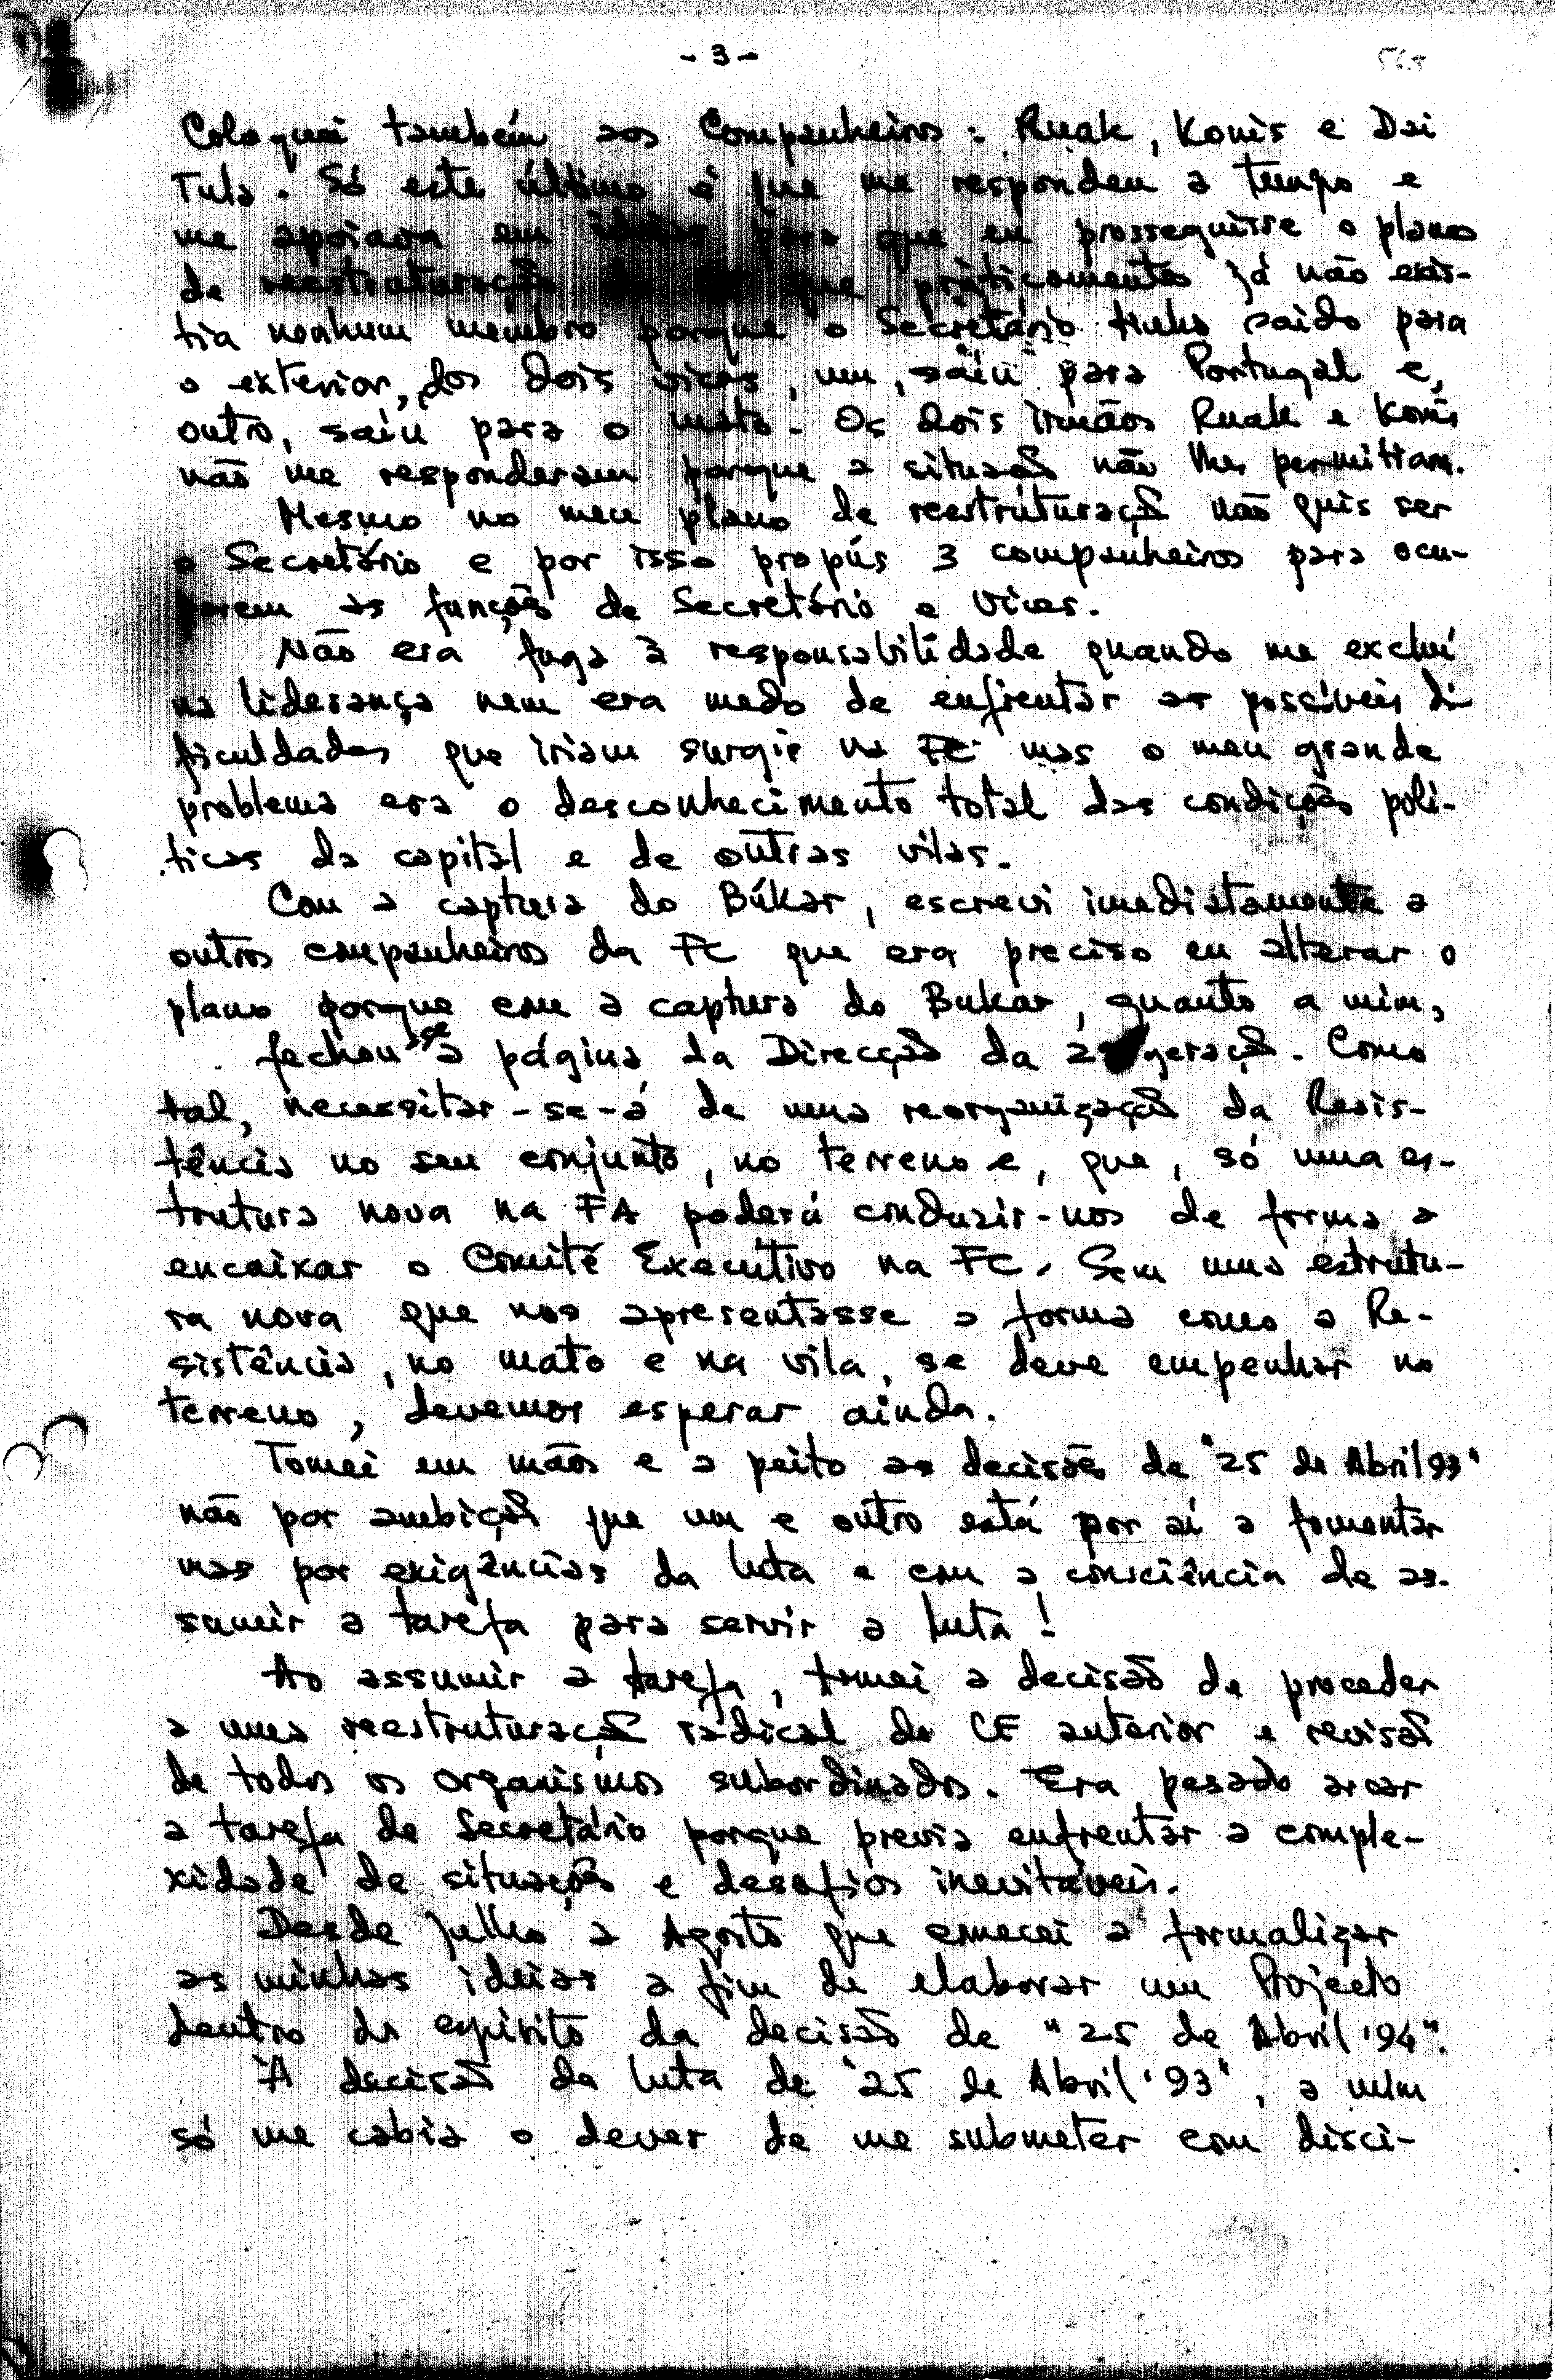 - 3 -
Coloquei também aos Companheiros: Ruak, Konis e Dai
Tula. Só este último é que me respondeu a tempo e
me apoiava em ideias para que eu prosseguisse o plano
de reestruturação que práticamente já não exis-
tia nenhum membro porque o Secretário tinha saído para
o exterior, dos dois vices, um, "saíu" para Portugal e,
outro, saíu para o mato. Os dois irmãos Ruak e Konis
não me responderam porque a situação não lhes permittiam.
Mesmo no meu plano de reestruturação não quis ser
o Secretário e por isso propús 3 companheiros para ocu-
parem as funções de Secretário e Vices.
Não era fuga à responsabilidade quando me excluí
na liderança nem era medo de enfrentar as possíveis di-
ficuldades que iriam surgir na FC mas o meu grande
problema era o desconhecimento total das condições polí-
ticas da capital e de outras vilas.
Com a captura do Búkar, escrevi imediatamente a
outros companheiros da FC que era preciso eu alterar o
plano porque com a captura do Bukar, quanto a mim,
fechou-se a página da Direcção da 2ª geração. Como
tal, necessitar-se-á de uma reorganização da Resis-
tência no seu conjunto, no terreno e, que, só uma es-
trutura nova na FA poderá conduzir-nos de forma a
encaixar o Comité Executivo na FC. Sem uma estrutu-
ra nova que nos apresentasse a forma como a Re-
sistência, no mato e na vila, se deve empenhar no
terreno, devemos esperar ainda.
Tomei em mãos e a peito as decisões de "25 de Abril 93"
não por ambição que um e outro está por aí a fomentar
mas por exigências da luta e com a consciência de as-
sumir a tarefa para servir a luta!
Ao assumir a tarefa, tomei a decisão de proceder
a uma reestruturação radical do CE anterior e revisão
de todos os organismos subordinados. Era pesado arcar
a tarefa de Secretário porque previa enfrentar a comple-
xidade de situações e desafios inevitáveis.
Desde Julho a Agosto que comecei a formalizar
as minhas ideias a fim de elaborar um Projecto
dentro do espírito da decisão de "25 de Abril '94".
À decisão da luta de "25 de Abril '93", a mim
só me cabia o dever de me submeter com disci-